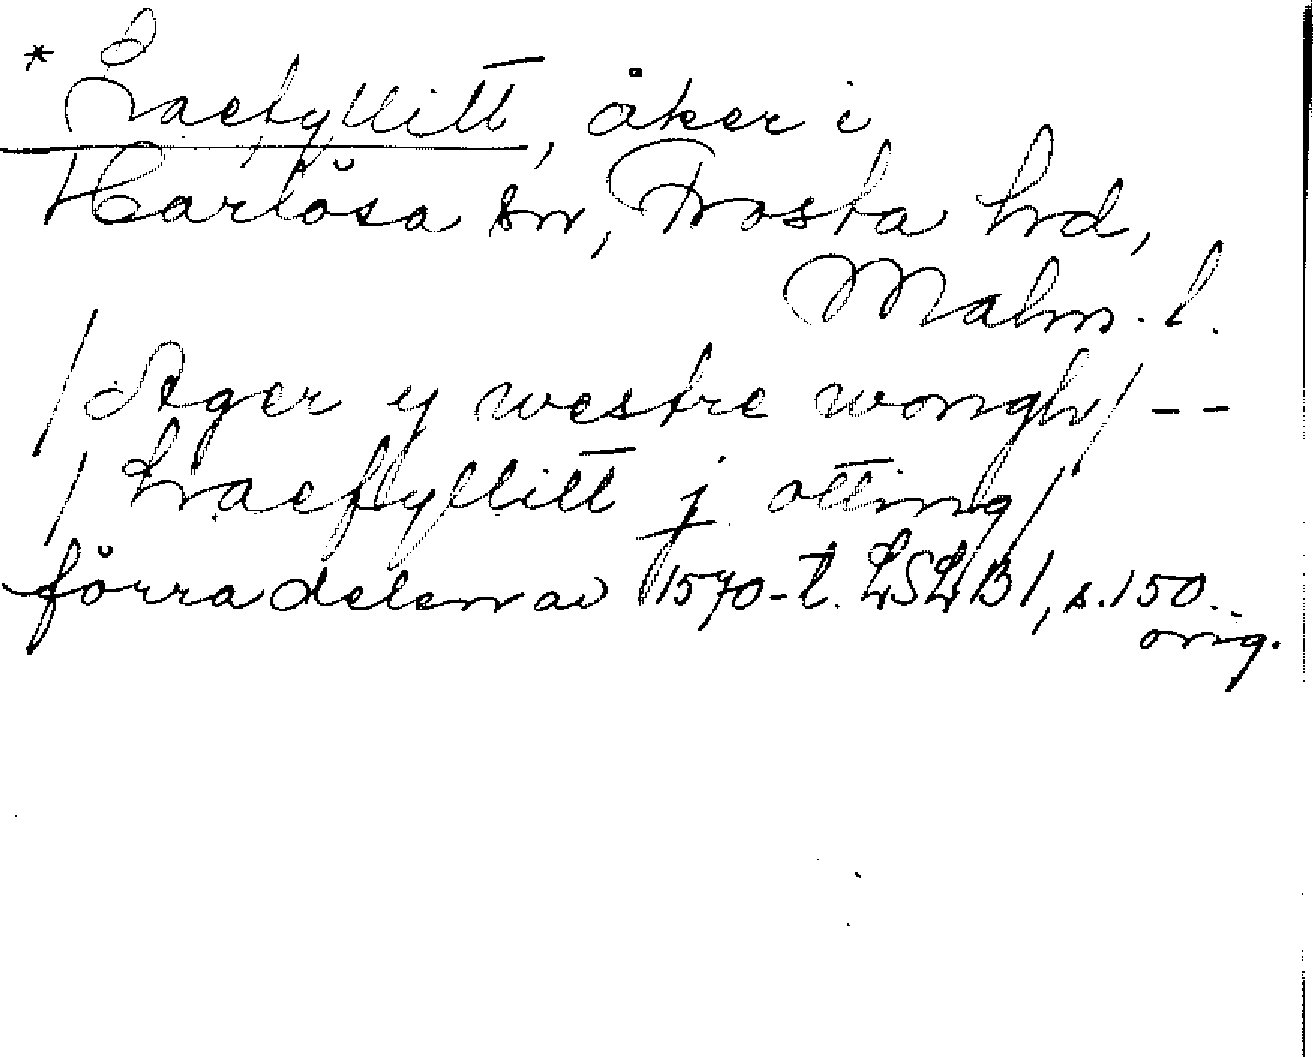 * Snaefyllitt, åker i
Harlösa sn, Frosta hd,
Malm. l.
/Ager y westre wongh/ --
/ Snaefyllitt j otting/
förra delen av 1570-t. LSLB1, s.150.
orig.